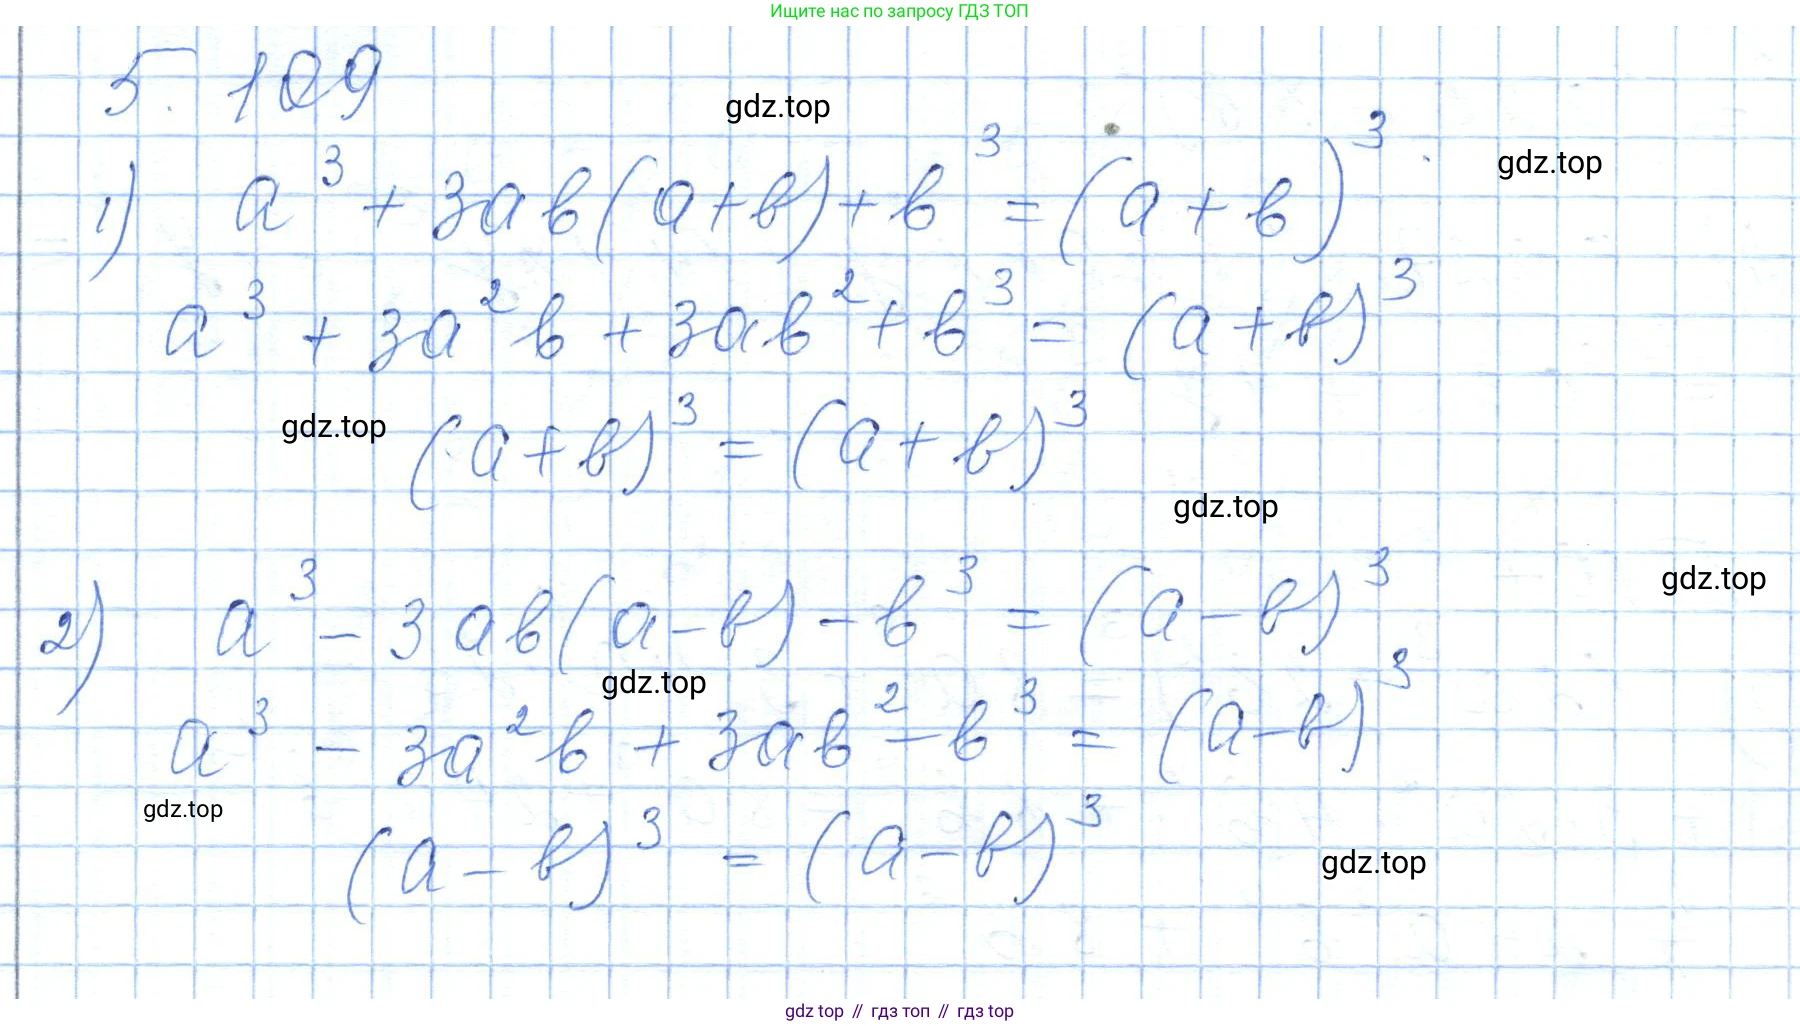 Ищите нас по запросу ГДЗ ТОП
5. 109
gdz.top
1) a³ + 3ав(a+в) + в³ = (a + в)³
gdz.top
a³ + 3a²в + 3ав² + в³ = (a + в)³
gdz.top
(a + в)³ = (a + в)³
gdz.top
2) a³ - 3ав(a-в) - в³ = (a - в)³
gdz.top
gdz.top
a³ - 3a²в + 3ав² - в³ = (a-в)³
gdz.top
(a - в)³ = (a - в)³
gdz.top
gdz top // гдз топ // гдз top